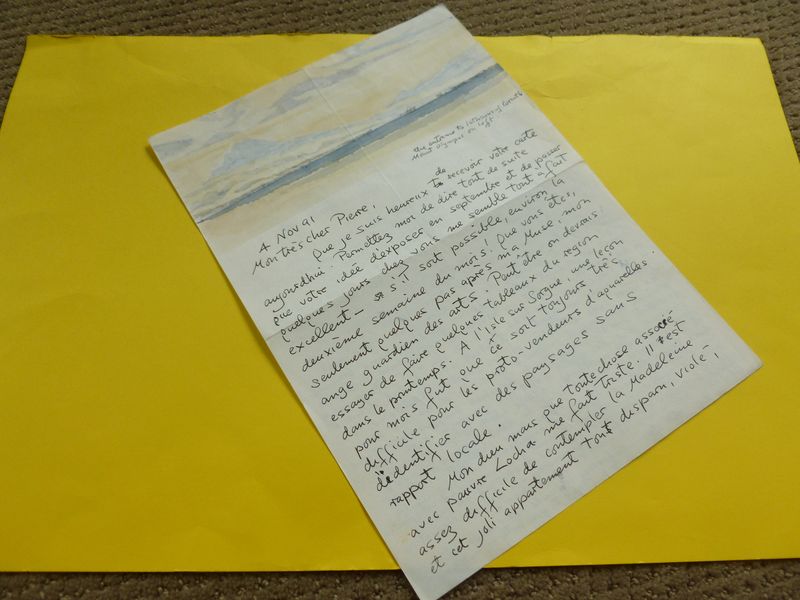 the entrance to
Mount Olympus on left
4 Nov 91
Mon très cher Pierre,
Que je suis heureux de recevoir votre carte
aujourdhui. Permettez moi de dire tout de suite
que votre idée d'exposer en septembre et de passer
quelques jours chez vous me semble tout a fait
excellent - s'il soit possible, environ la
deuxième semaine du mois! Que vous etes,
seulement quelques pas après ma Muse, mon
ange guardien des arts. Peut'être on devrais
essayer de faire quelques tableaux du region
dans le printemps. A l'Isle sur Sorgue une leçon
pour mois fut que ce sont toujours très
difficile pour les proto-vendeurs d'aquarelles.
d'identifier avec des paysages sans
rapport locale.
Mon dieu mais que toute chose associé
avec pauvre Locha me fait triste. Il est
assez difficile de contempler la Madeleine
et cet joli appartement tout disparu, violé,